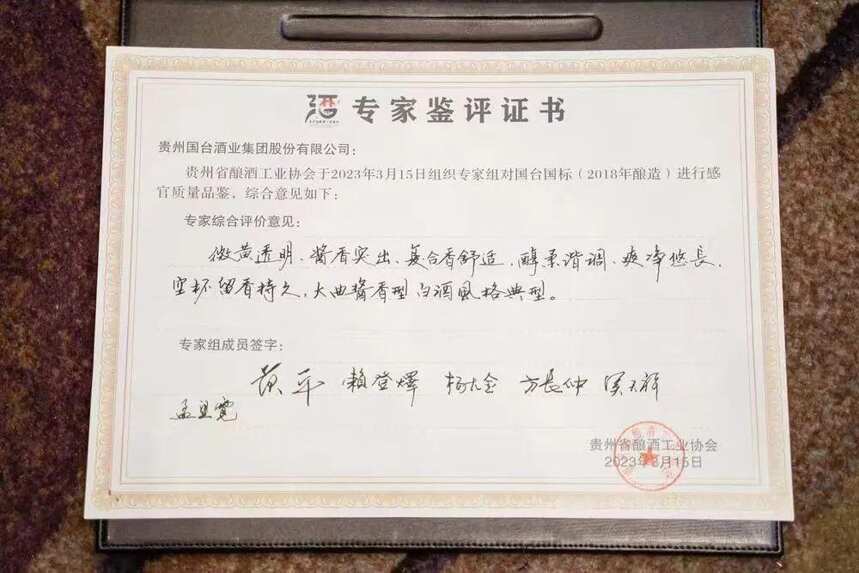 酒 专家鉴评证书
贵州国台酒业集团股份有限公司：
贵州省酿酒工业协会于2023年3月15日组织专家组对国台国标（2018年酿造）进行感
官质量品鉴，综合意见如下：
专家综合评价意见：
微黄透明、醬香突出、复合香舒适、醇柔谐调、爽净悠長、
空杯留香持久，大曲醬香型白酒風格典型。
专家组成员签字：
黄平 賴登燡 杨大金 方長仲 吴天祥
孟望霓
贵州省酿酒工业协会
2023年3月15日